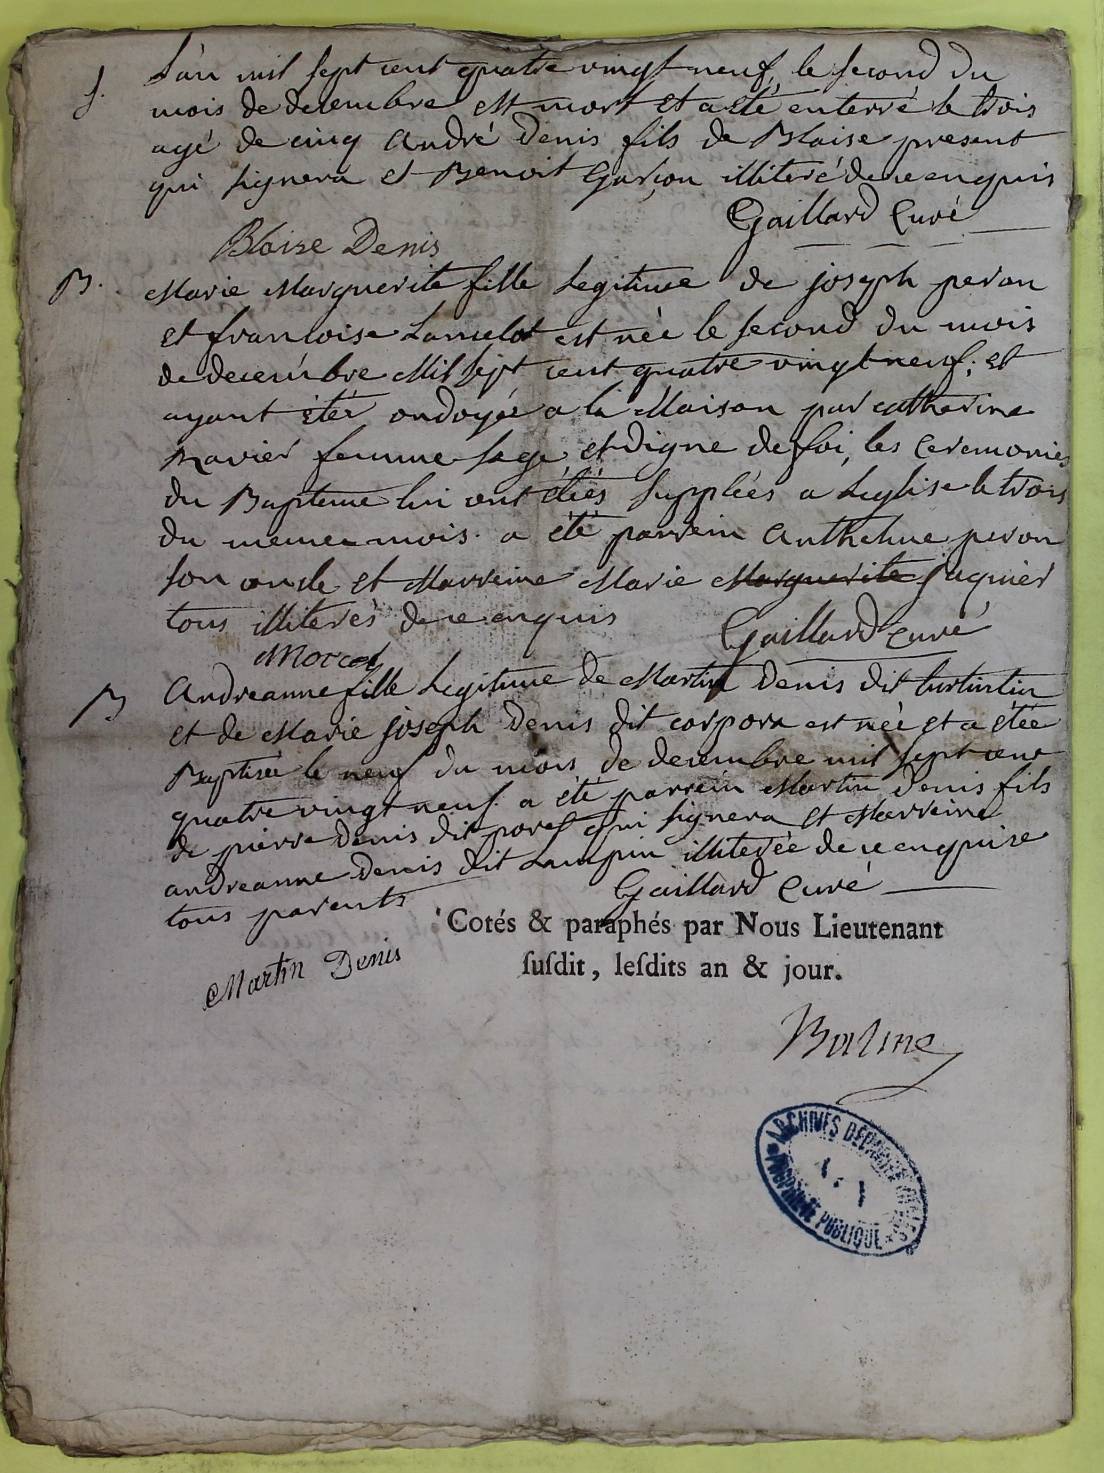 S. L'an mil sept cent quatre vingt neuf, le second du
mois de decembre est mort et a été enterré le trois
agé de cinq André Denis fils de Blaise present
qui signera et Benoit Garçon illiteré de ce enquis
Gaillard Curé
Blaise Denis
B. Marie Marguerite fille Legitime de joseph peron
et francoise Lancelot est née le second du mois
de decembre Mil sept cent quatre vingt neuf; et
ayant étée ondoyée a la Maison par catherine
Ravier femme sage et digne de foi, les Ceremonies
du Bapteme lui ont étées supplées a Leglise le trois
du meme mois. a été parrein Anthelme peron
son oncle et Marreine Marie Marguerite jaquier
tous illiterés de ce enquis
Gaillard curé
B Andreanne fille Legitime de Martin Denis dit
et de Marie joseph Denis dit corpora est née et a étée
Baptisée le neuf du mois de decembre mil sept cent
quatre vingt neuf. a été parrein Martin Denis fils
de pierre Denis dit qui signera et Marreine
andreanne Denis dit illiterée de ce enquise
tous parents
Gaillard Curé
Cotés & paraphés par Nous Lieutenant
susdit, lesdits an & jour.
Martin Denis
Balme
ARCHIVES DEPARTEMENTALES
PROPRIÉTÉ PUBLIQUE